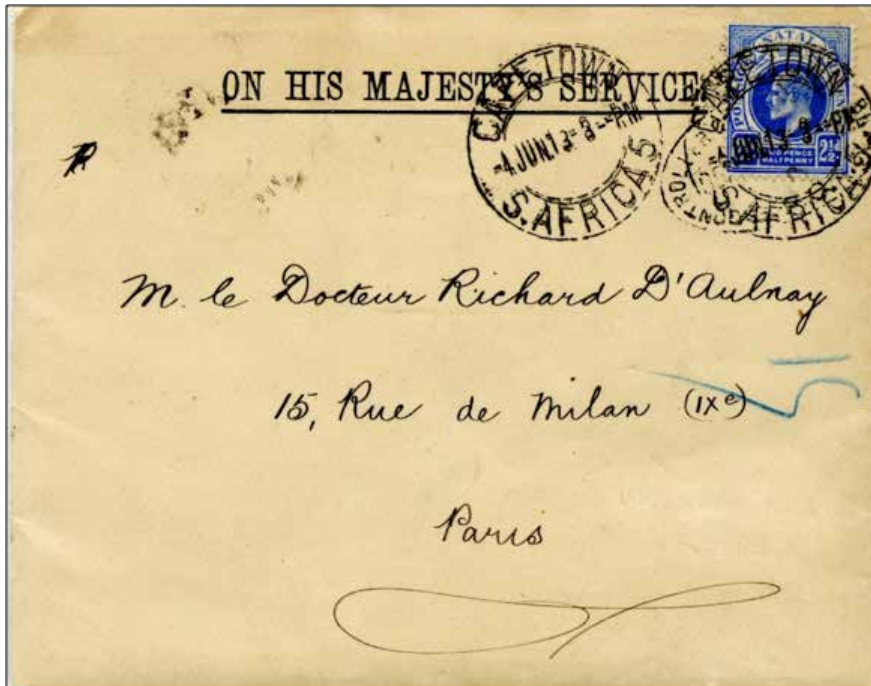 ON HIS MAJESTY'S SERVICE.
CAPETOWN
4 JUN.13
PM
S. AFRICA 5
NATAL
HALFPENNY
2½
CAPETOWN
JUN.13
PM
S. AFRICA
M. le Docteur Richard D'Aulnay
15, Rue de Milan (IXe)
Paris